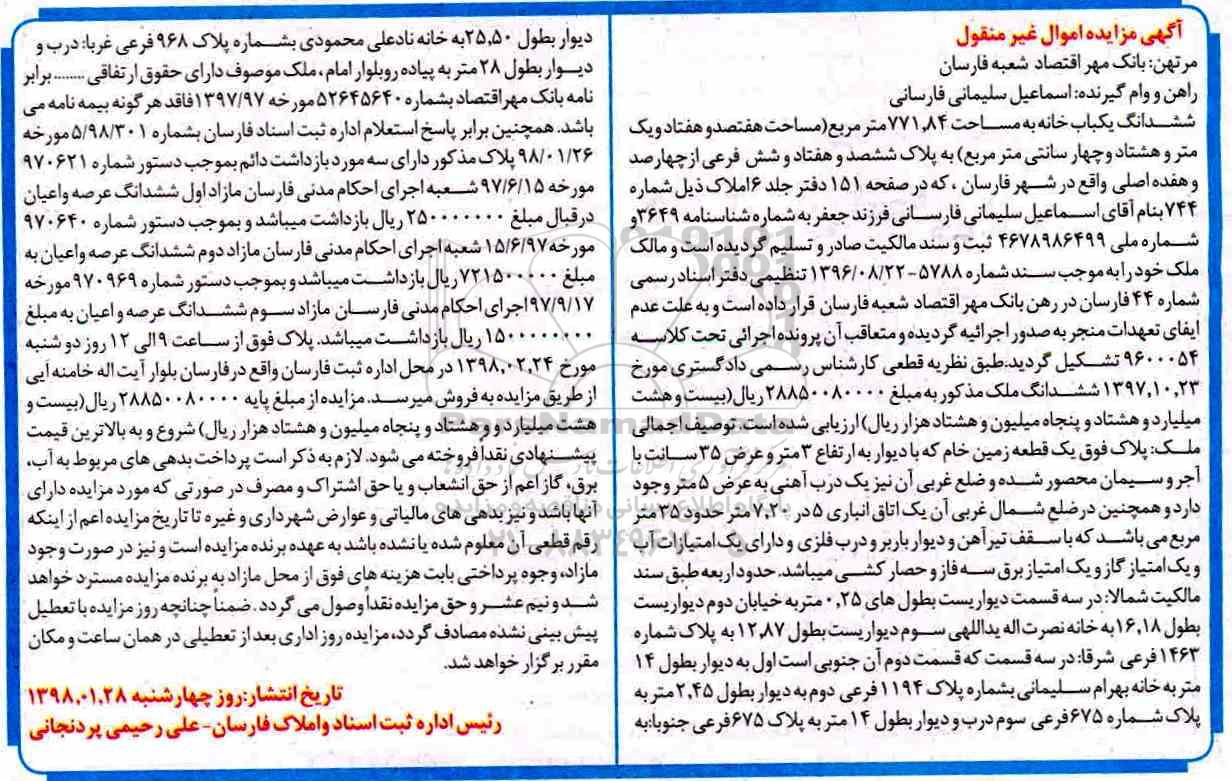 آگهی مزایده اموال غیر منقول
مرتهن: بانک مهر اقتصاد شعبه فارسان
راهن و وام گیرنده: اسماعیل سلیمانی فارسانی
ششدانگ یکباب خانه به مساحت ۷۷۱,۸۴ متر مربع(مساحت هفتصدو هفتاد ویک
متر و هشتاد وچهار سانتی متر مربع) به پلاک ششصد و هفتاد و شش فرعی ازچهارصد
و هفده اصلی واقع در شهر فارسان ، که در صفحه ۱۵۱ دفتر جلد ۶املاک ذیل شماره
۷۴۴ بنام آقای اسماعیل سلیمانی فارسانی فرزند جعفر به شماره شناسنامه ۳۶۴۹و
شماره ملی ۴۶۷۸۹۸۶۴۹۹ ثبت و سند مالکیت صادر و تسلیم گردیده است و مالک
ملک خود را به موجب سند شماره ۵۷۸۸-۱۳۹۶/۰۸/۲۲ تنظیمی دفتر اسناد رسمی
شماره ۴۴ فارسان در رهن بانک مهر اقتصاد شعبه فارسان قرار داده است و به علت عدم
ایفای تعهدات منجر به صدور اجرائیه گردیده و متعاقب آن پرونده اجرائی تحت کلاسه
۹۶۰۰۰۵۴ تشکیل گردید.طبق نظریه قطعی کارشناس رسمی دادگستری مورخ
۱۳۹۷,۱۰,۲۳ ششدانگ ملک مذکور به مبلغ ۲۸۸۵۰۰۸۰۰۰۰ ریال(بیست و هشت
میلیارد و هشتاد و پنجاه میلیون و هشتاد هزار ریال) ارزیابی شده است. توصیف اجمالی
ملک: پلاک فوق یک قطعه زمین خام که با دیوار به ارتفاع ۳ متر و عرض ۳۵ سانت با
آجر و سیمان محصور شده و ضلع غربی آن نیز یک درب آهنی به عرض ۵ متر وجود
دارد و همچنین در ضلع شمال غربی آن یک اتاق انباری ۵ در ۷,۲۰ متر حدود ۳۵ متر
مربع می باشد که با سقف تیرآهن و دیوار باربر و درب فلزی و دارای یک امتیازات آب
و یک امتیاز گاز و یک امتیاز برق سه فاز و حصار کشی میباشد. حدود اربعه طبق سند
مالکیت شمالا: در سه قسمت دیواریست بطول های ۰,۲۵ متر به خیابان دوم دیواریست
بطول ۱۶,۱۸ به خانه نصرت اله یداللهی سوم دیواریست بطول ۱۲,۸۷ به پلاک شماره
۱۴۶۳ فرعی شرقا: در سه قسمت که قسمت دوم آن جنوبی است اول به دیوار بطول ۱۴
متر به خانه بهرام سلیمانی بشماره پلاک ۱۱۹۴ فرعی دوم به دیوار بطول ۲,۴۵ متر به
پلاک شماره ۶۷۵فرعی سوم درب و دیوار بطول ۱۴ متر به پلاک ۶۷۵فرعی جنوبا:به
دیوار بطول ۲۵,۵۰به خانه نادعلی محمودی بشماره پلاک ۹۶۸ فرعی غربا: درب و
دیوار بطول ۲۸ متر به پیاده رو بلوار امام ، ملک موصوف دارای حقوق ارتفاقی ........ برابر
نامه بانک مهر اقتصاد بشماره ۵۲۶۴۵۶۴۰ مورخه ۱۳۹۷/۹۷فاقد هر گونه بیمه نامه می
باشد. همچنین برابر پاسخ استعلام اداره ثبت اسناد فارسان بشماره ۵/۹۸/۳۰۱ مورخه
۹۸/۰۱/۲۶ پلاک مذکور دارای سه مورد بازداشت دائم بموجب دستور شماره ۹۷۰۶۲۱
مورخه ۹۷/۶/۱۵ شعبه اجرای احکام مدنی فارسان مازاد اول ششدانگ عرصه واعیان
در قبال مبلغ ۲۵۰۰۰۰۰۰۰ ریال بازداشت میباشد و بموجب دستور شماره ۹۷۰۶۴۰
مورخه ۱۵/۶/۹۷ شعبه اجرای احکام مدنی فارسان مازاد دوم ششدانگ عرصه واعیان به
مبلغ ۷۲۱۵۰۰۰۰۰ ریال بازداشت میباشد و بموجب دستور شماره ۹۷۰۹۶۹ مورخه
۹۷/۹/۱۷ اجرای احکام مدنی فارسان مازاد سوم ششدانگ عرصه و اعیان به مبلغ
۱۵۰۰۰۰۰۰۰۰ ریال بازداشت میباشد. پلاک فوق از ساعت ۹ الی ۱۲ روز دو شنبه
مورخ ۱۳۹۸,۰۲,۲۴ در محل اداره ثبت فارسان واقع در فارسان بلوار آیت اله خامنه آیی
از طریق مزایده به فروش میرسد. مزایده از مبلغ پایه ۲۸۸۵۰۰۸۰۰۰۰ ریال(بیست و
هشت میلیارد و و هشتاد و پنجاه میلیون و هشتاد هزار ریال) شروع و به بالاترین قیمت
پیشنهادی نقدا فروخته می شود. لازم به ذکر است پرداخت بدهی های مربوط به آب،
برق، گاز اعم از حق انشعاب و یا حق اشتراک و مصرف در صورتی که مورد مزایده دارای
آنها باشد و نیز بدهی های مالیاتی و عوارض شهرداری و غیره تا تاریخ مزایده اعم از اینکه
رقم قطعی آن معلوم شده یا نشده باشد به عهده برنده مزایده است و نیز در صورت وجود
مازاد، وجوه پرداختی بابت هزینه های فوق از محل مازاد به برنده مزایده مسترد خواهد
شد و نیم عشر و حق مزایده نقداً وصول می گردد . ضمناً چنانچه روز مزایده با تعطیل
پیش بینی نشده مصادف گردد، مزایده روز اداری بعد از تعطیلی در همان ساعت و مکان
مقرر برگزار خواهد شد.
تاریخ انتشار:روز چهارشنبه ۱۳۹۸,۰۱,۲۸
رئیس اداره ثبت اسناد واملاک فارسان- علی رحیمی پردنجانی